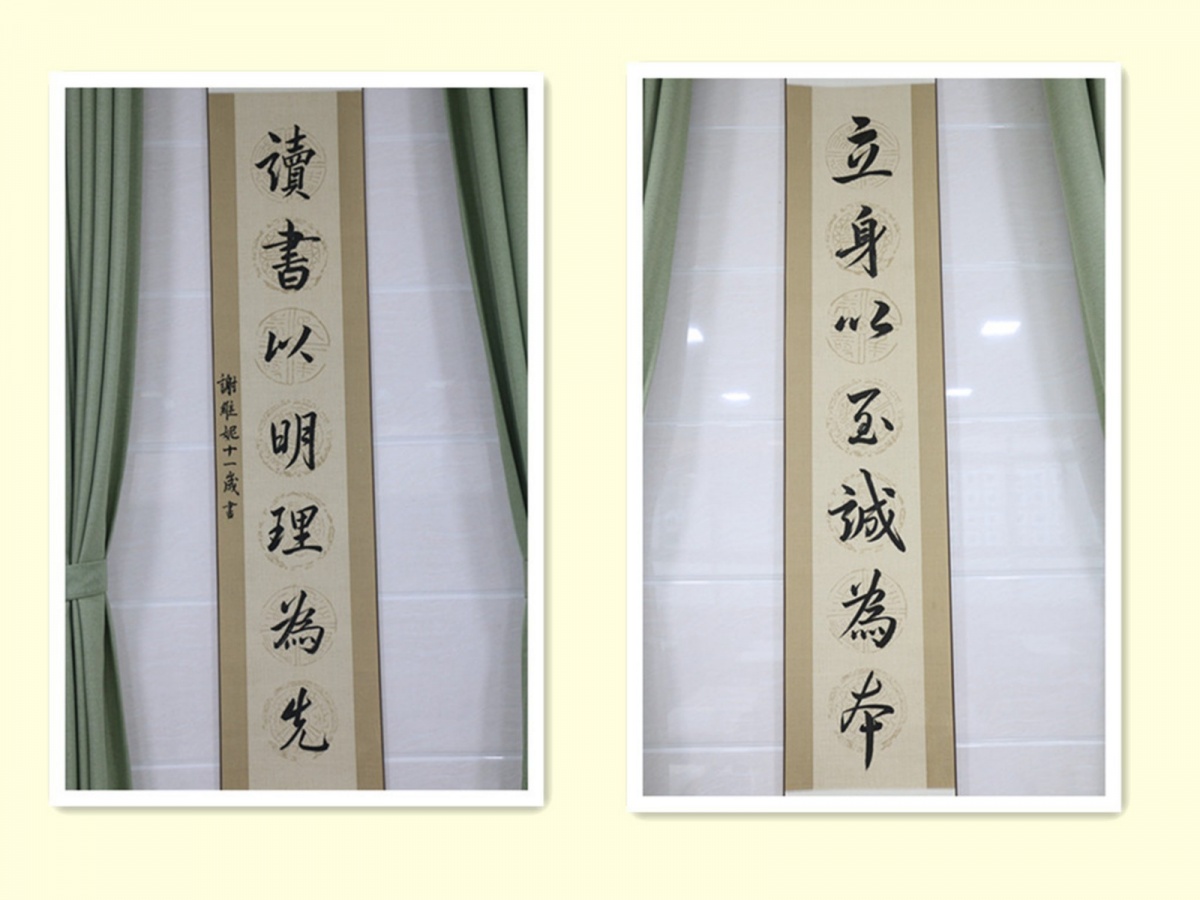 立身以至誠為本
讀書以明理為先
謝雅妮十一歲書